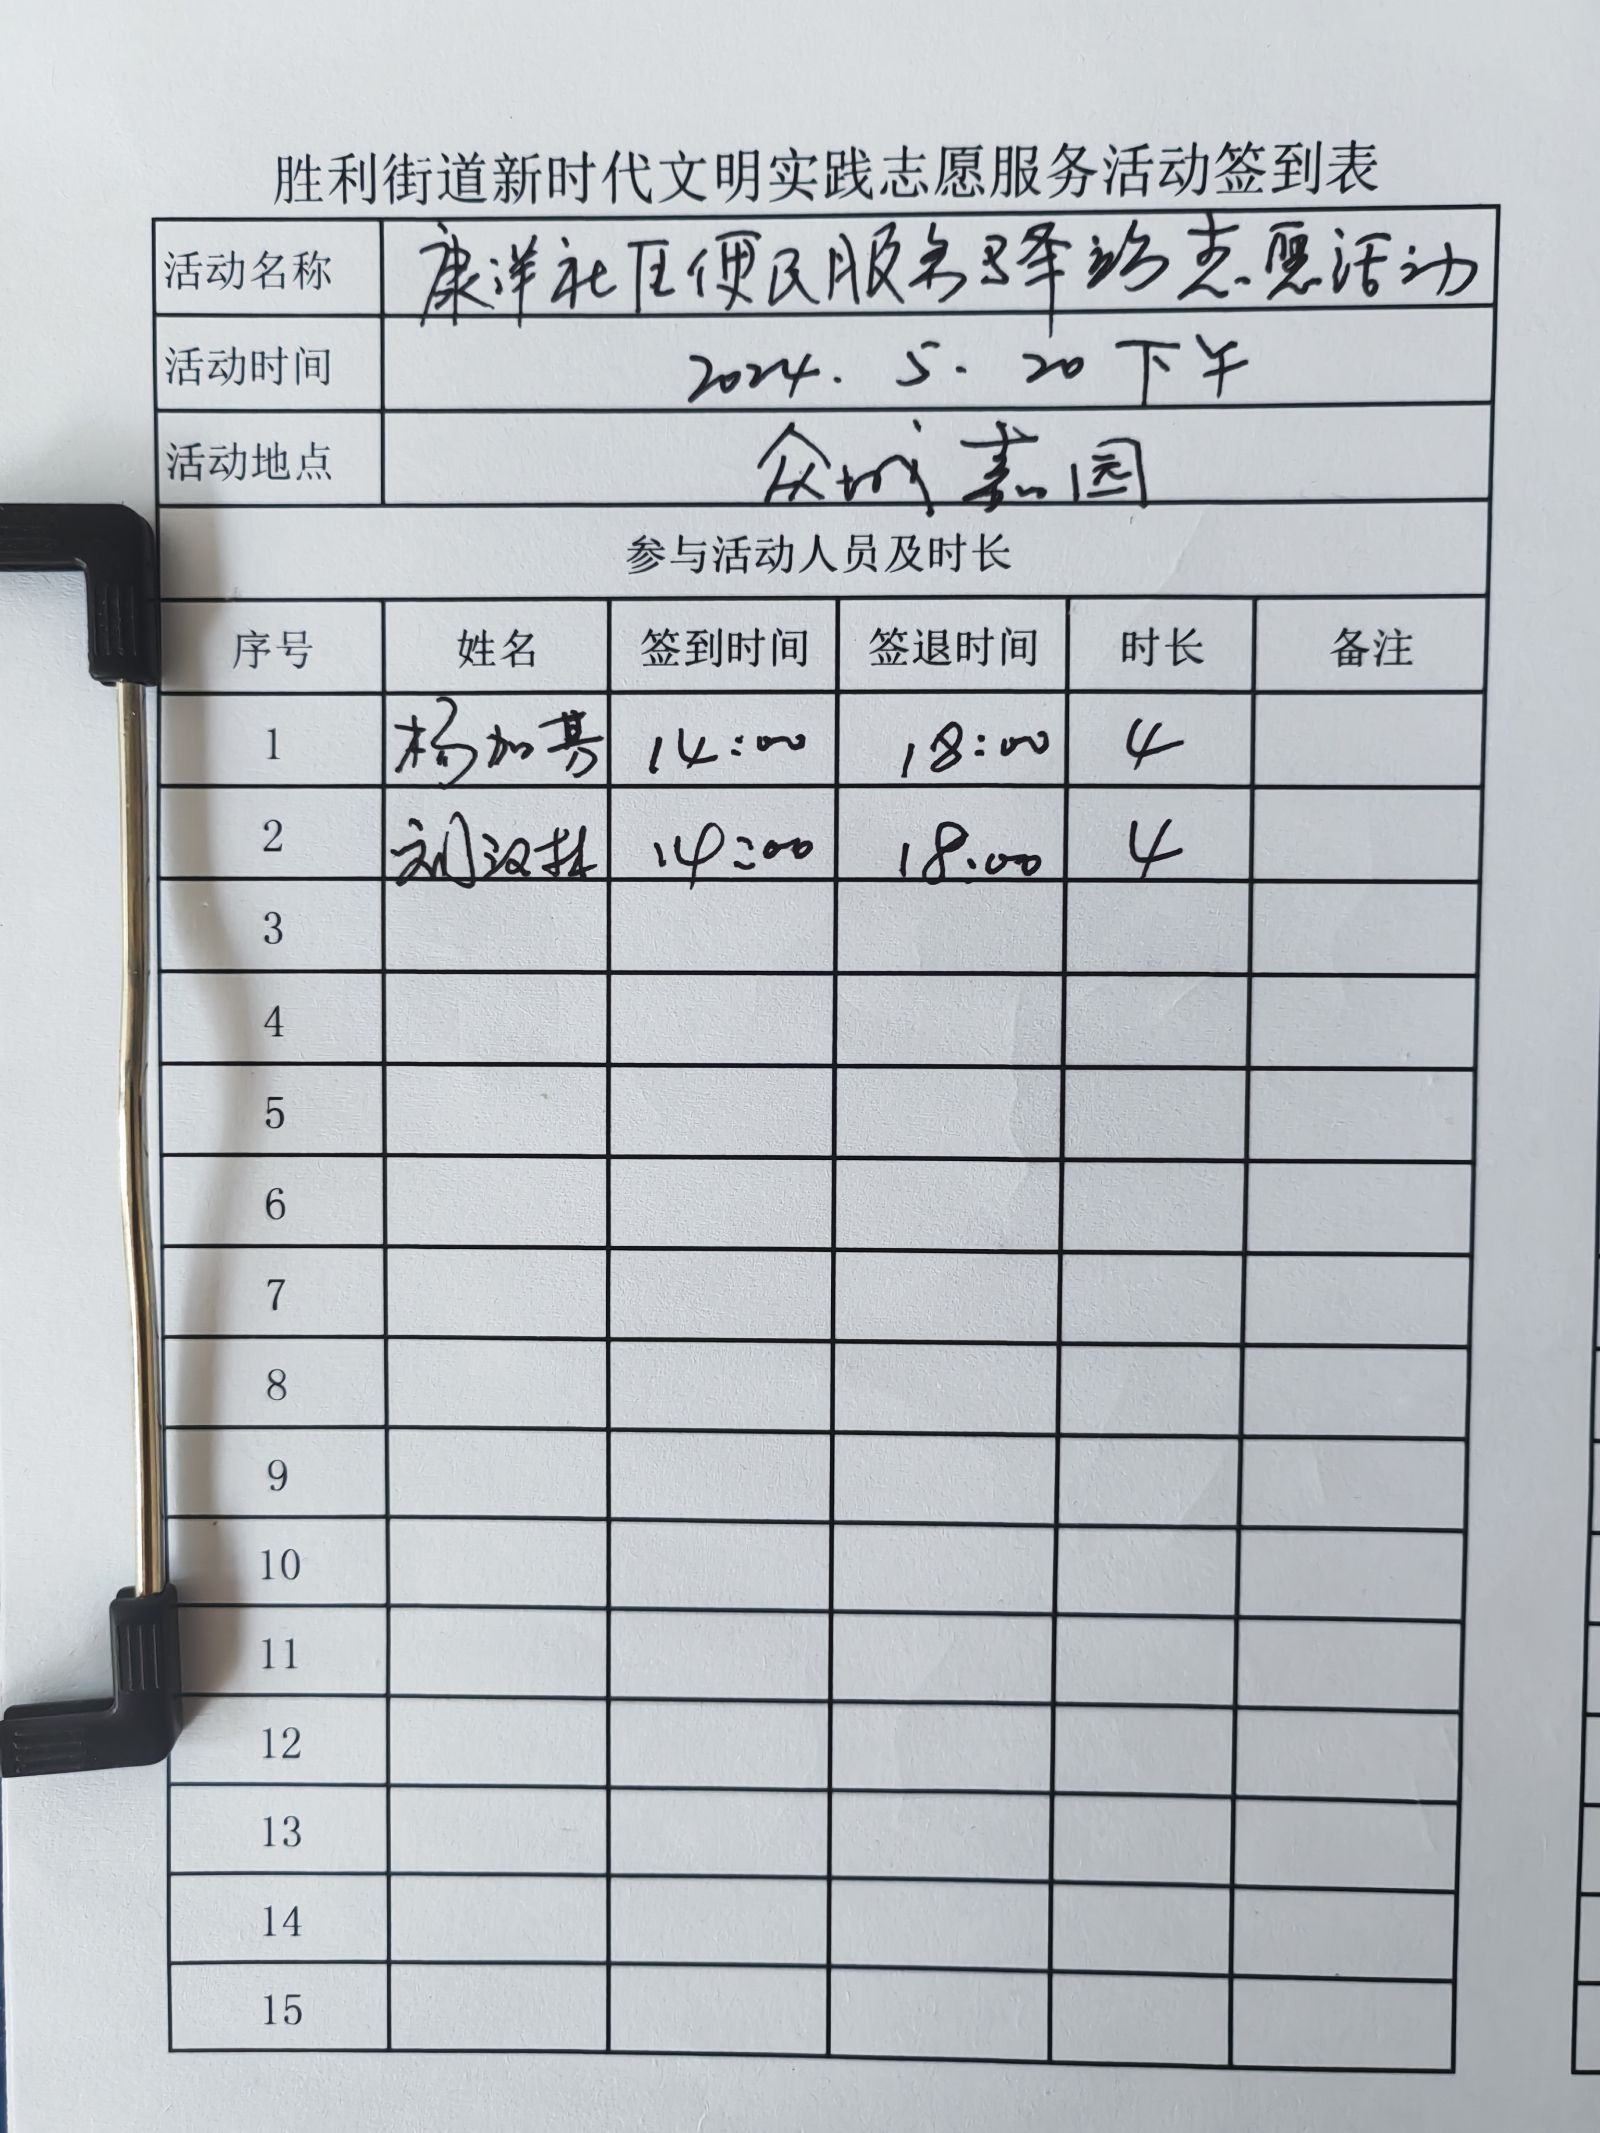 胜利街道新时代文明实践志愿服务活动签到表
活动名称 康洋社区便民服务驿站志愿活动
活动时间 2024.5.20下午
活动地点 众城嘉园
参与活动人员及时长
序号 姓名 签到时间 签退时间 时长 备注
1 杨加 14:00 18:00 4
2 刘汉林 14:00 18:00 4
3
4
5
6
7
8
9
10
11
12
13
14
15